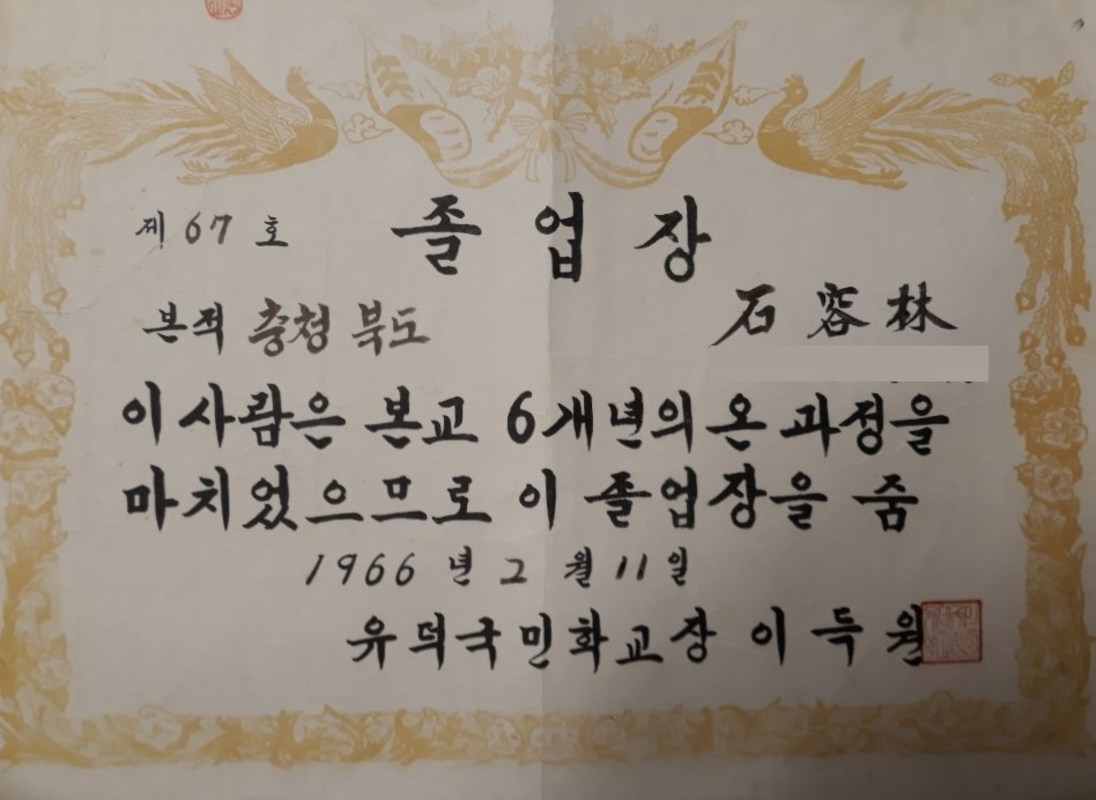 제 67 호 졸 업 장
본적 충청 북도 石 容 林
이 사람은 본교 6개년의 온 과정을
마치었으므로 이 졸업장을 줌
1966 년 2 월 11 일
유덕국민학교장 이 득 원